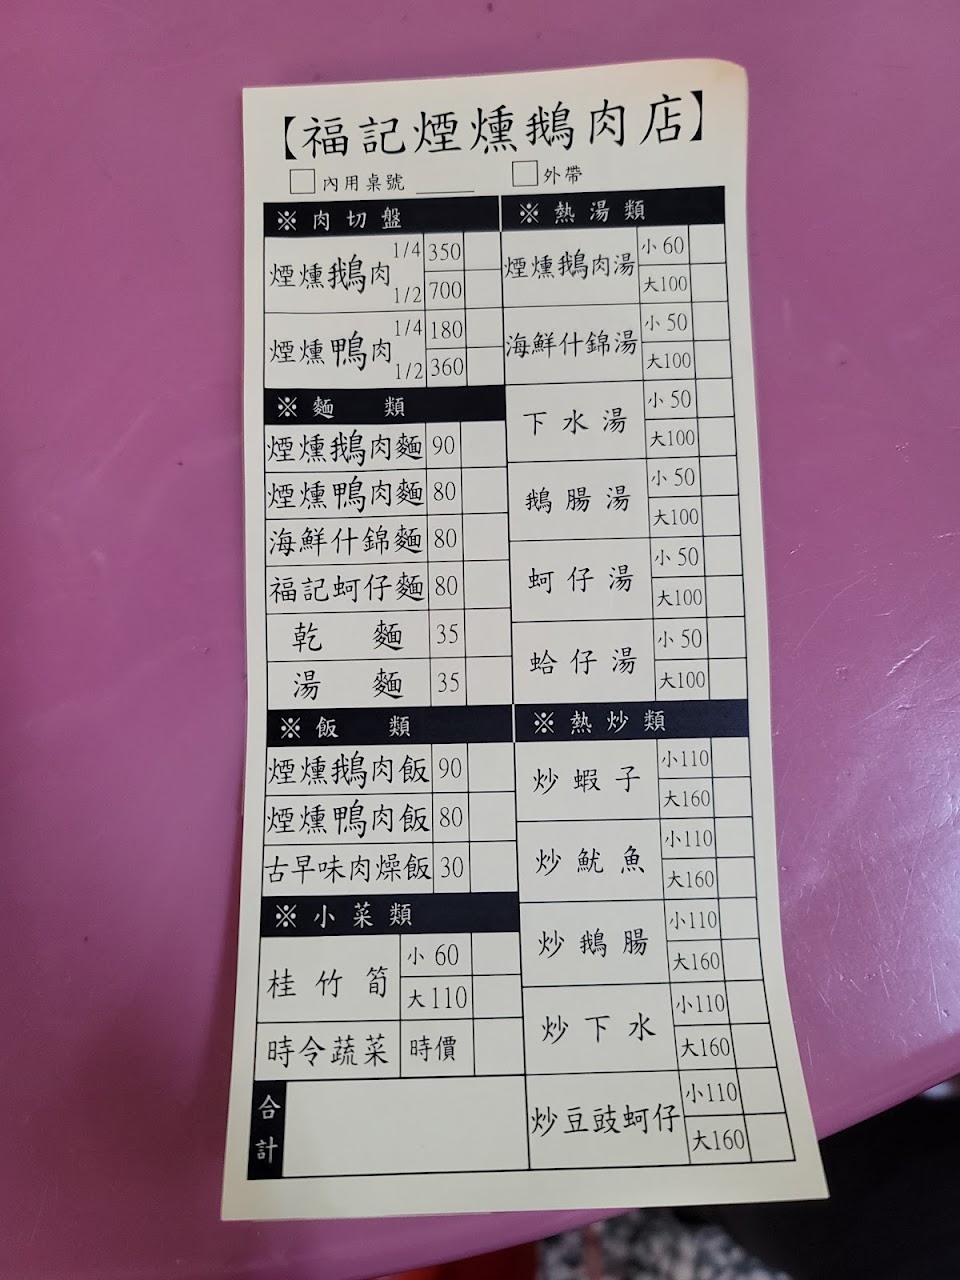 【福記煙燻鵝肉店】
□內用桌號____ □外帶
※肉切盤
煙燻鵝肉 1/4 350
1/2 700
煙燻鴨肉 1/4 180
1/2 360
※麵類
煙燻鵝肉麵 90
煙燻鴨肉麵 80
海鮮什錦麵 80
福記蚵仔麵 80
乾麵 35
湯麵 35
※飯類
煙燻鵝肉飯 90
煙燻鴨肉飯 80
古早味肉燥飯 30
※小菜類
桂竹筍 小60
大110
時令蔬菜 時價
合計
※熱湯類
煙燻鵝肉湯 小60
大100
海鮮什錦湯 小50
大100
下水湯 小50
大100
鵝腸湯 小50
大100
蚵仔湯 小50
大100
蛤仔湯 小50
大100
※熱炒類
炒蝦子 小110
大160
炒魷魚 小110
大160
炒鵝腸 小110
大160
炒下水 小110
大160
炒豆豉蚵仔 小110
大160